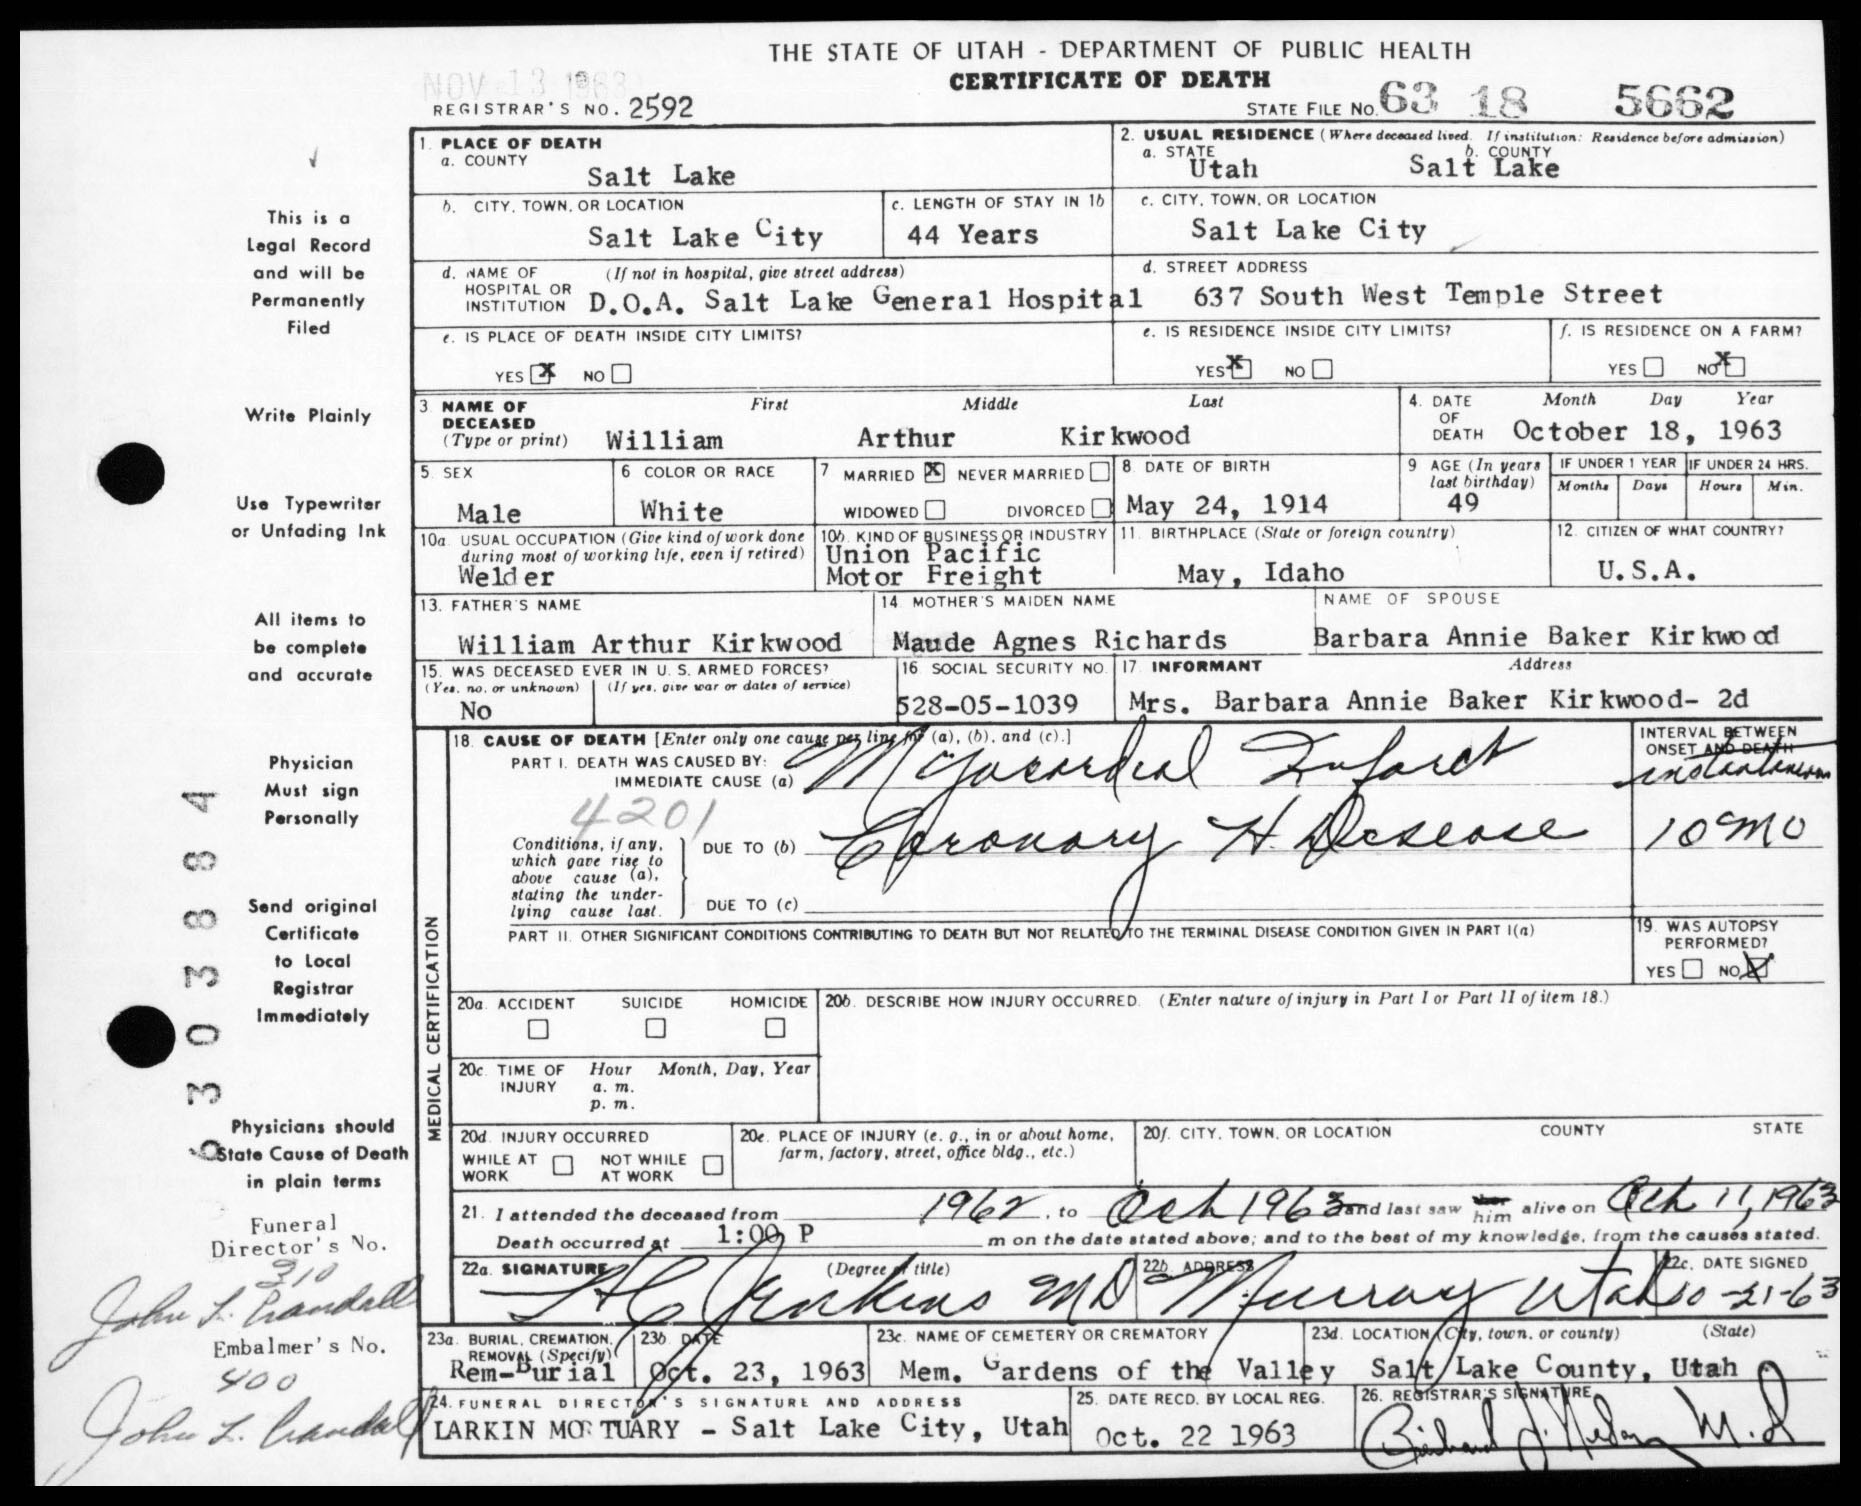 THE STATE OF UTAH - DEPARTMENT OF PUBLIC HEALTH
NOV 13 1963
CERTIFICATE OF DEATH
REGISTRAR'S NO. 2592
STATE FILE NO. 63 18 5662
1. PLACE OF DEATH
a. COUNTY
Salt Lake
2. USUAL RESIDENCE (Where deceased lived. If institution: Residence before admission)
a. STATE b. COUNTY
Utah Salt Lake
b. CITY, TOWN, OR LOCATION
Salt Lake City
c. LENGTH OF STAY IN 1b
44 Years
c. CITY, TOWN, OR LOCATION
Salt Lake City
d. NAME OF (If not in hospital, give street address)
HOSPITAL OR
INSTITUTION D.O.A. Salt Lake General Hospital
d. STREET ADDRESS
637 South West Temple Street
e. IS PLACE OF DEATH INSIDE CITY LIMITS?
YES X NO
e. IS RESIDENCE INSIDE CITY LIMITS?
YES X NO
f. IS RESIDENCE ON A FARM?
YES NO X
3. NAME OF DECEASED (Type or print) First Middle Last
William Arthur Kirkwood
4. DATE OF DEATH Month Day Year
October 18, 1963
5. SEX
Male
6 COLOR OR RACE
White
7 MARRIED X NEVER MARRIED
WIDOWED DIVORCED
8. DATE OF BIRTH
May 24, 1914
9 AGE (In years last birthday)
49
IF UNDER 1 YEAR
Months Days
IF UNDER 24 HRS.
Hours Min.
10a. USUAL OCCUPATION (Give kind of work done
during most of working life, even if retired)
Welder
10b. KIND OF BUSINESS OR INDUSTRY
Union Pacific
Motor Freight
11. BIRTHPLACE (State or foreign country)
May, Idaho
12. CITIZEN OF WHAT COUNTRY?
U.S.A.
13. FATHER'S NAME
William Arthur Kirkwood
14 MOTHER'S MAIDEN NAME
Maude Agnes Richards
NAME OF SPOUSE
Barbara Annie Baker Kirkwood
15. WAS DECEASED EVER IN U. S. ARMED FORCES?
(Yes, no, or unknown) (If yes, give war or dates of service)
No
16 SOCIAL SECURITY NO.
528-05-1039
17. INFORMANT Address
Mrs. Barbara Annie Baker Kirkwood- 2d
MEDICAL CERTIFICATION
18. CAUSE OF DEATH [Enter only one cause per line for (a), (b), and (c).]
PART I. DEATH WAS CAUSED BY:
IMMEDIATE CAUSE (a) Myocardial Infarct
INTERVAL BETWEEN
ONSET AND DEATH
instantaneous
4201
Conditions, if any,
which gave rise to
above cause (a),
stating the under-
lying cause last.
DUE TO (b) Coronary H. Disease 10 mo
DUE TO (c)
PART II. OTHER SIGNIFICANT CONDITIONS CONTRIBUTING TO DEATH BUT NOT RELATED TO THE TERMINAL DISEASE CONDITION GIVEN IN PART I(a)
19. WAS AUTOPSY
PERFORMED?
YES NO X
20a. ACCIDENT SUICIDE HOMICIDE
20b. DESCRIBE HOW INJURY OCCURRED. (Enter nature of injury in Part I or Part II of item 18.)
20c. TIME OF INJURY Hour Month, Day, Year
a. m.
p. m.
20d. INJURY OCCURRED
WHILE AT WORK NOT WHILE AT WORK
20e. PLACE OF INJURY (e. g., in or about home,
farm, factory, street, office bldg., etc.)
20f. CITY, TOWN, OR LOCATION COUNTY STATE
21. I attended the deceased from 1962, to Oct 1963 and last saw her him alive on Oct 11, 1963
Death occurred at 1:00 P m on the date stated above; and to the best of my knowledge, from the causes stated.
22a. SIGNATURE (Degree or title)
H C Jenkins MD
22b. ADDRESS
Murray Utah
22c. DATE SIGNED
10-21-63
23a. BURIAL, CREMATION,
REMOVAL (Specify)
Rem-Burial
23b. DATE
Oct. 23, 1963
23c. NAME OF CEMETERY OR CREMATORY
Mem. Gardens of the Valley
23d. LOCATION (City, town, or county) (State)
Salt Lake County, Utah
24. FUNERAL DIRECTOR'S SIGNATURE AND ADDRESS
LARKIN MORTUARY - Salt Lake City, Utah
25. DATE RECD. BY LOCAL REG.
Oct. 22 1963
26. REGISTRAR'S SIGNATURE
Richard M.D
This is a
Legal Record
and will be
Permanently
Filed
Write Plainly
Use Typewriter
or Unfading Ink
All items to
be complete
and accurate
Physician
Must sign
Personally
Send original
Certificate
to Local
Registrar
Immediately
Physicians should
State Cause of Death
in plain terms
Funeral
Director's No.
310
John L. Crandall
Embalmer's No.
400
John L. Crandall